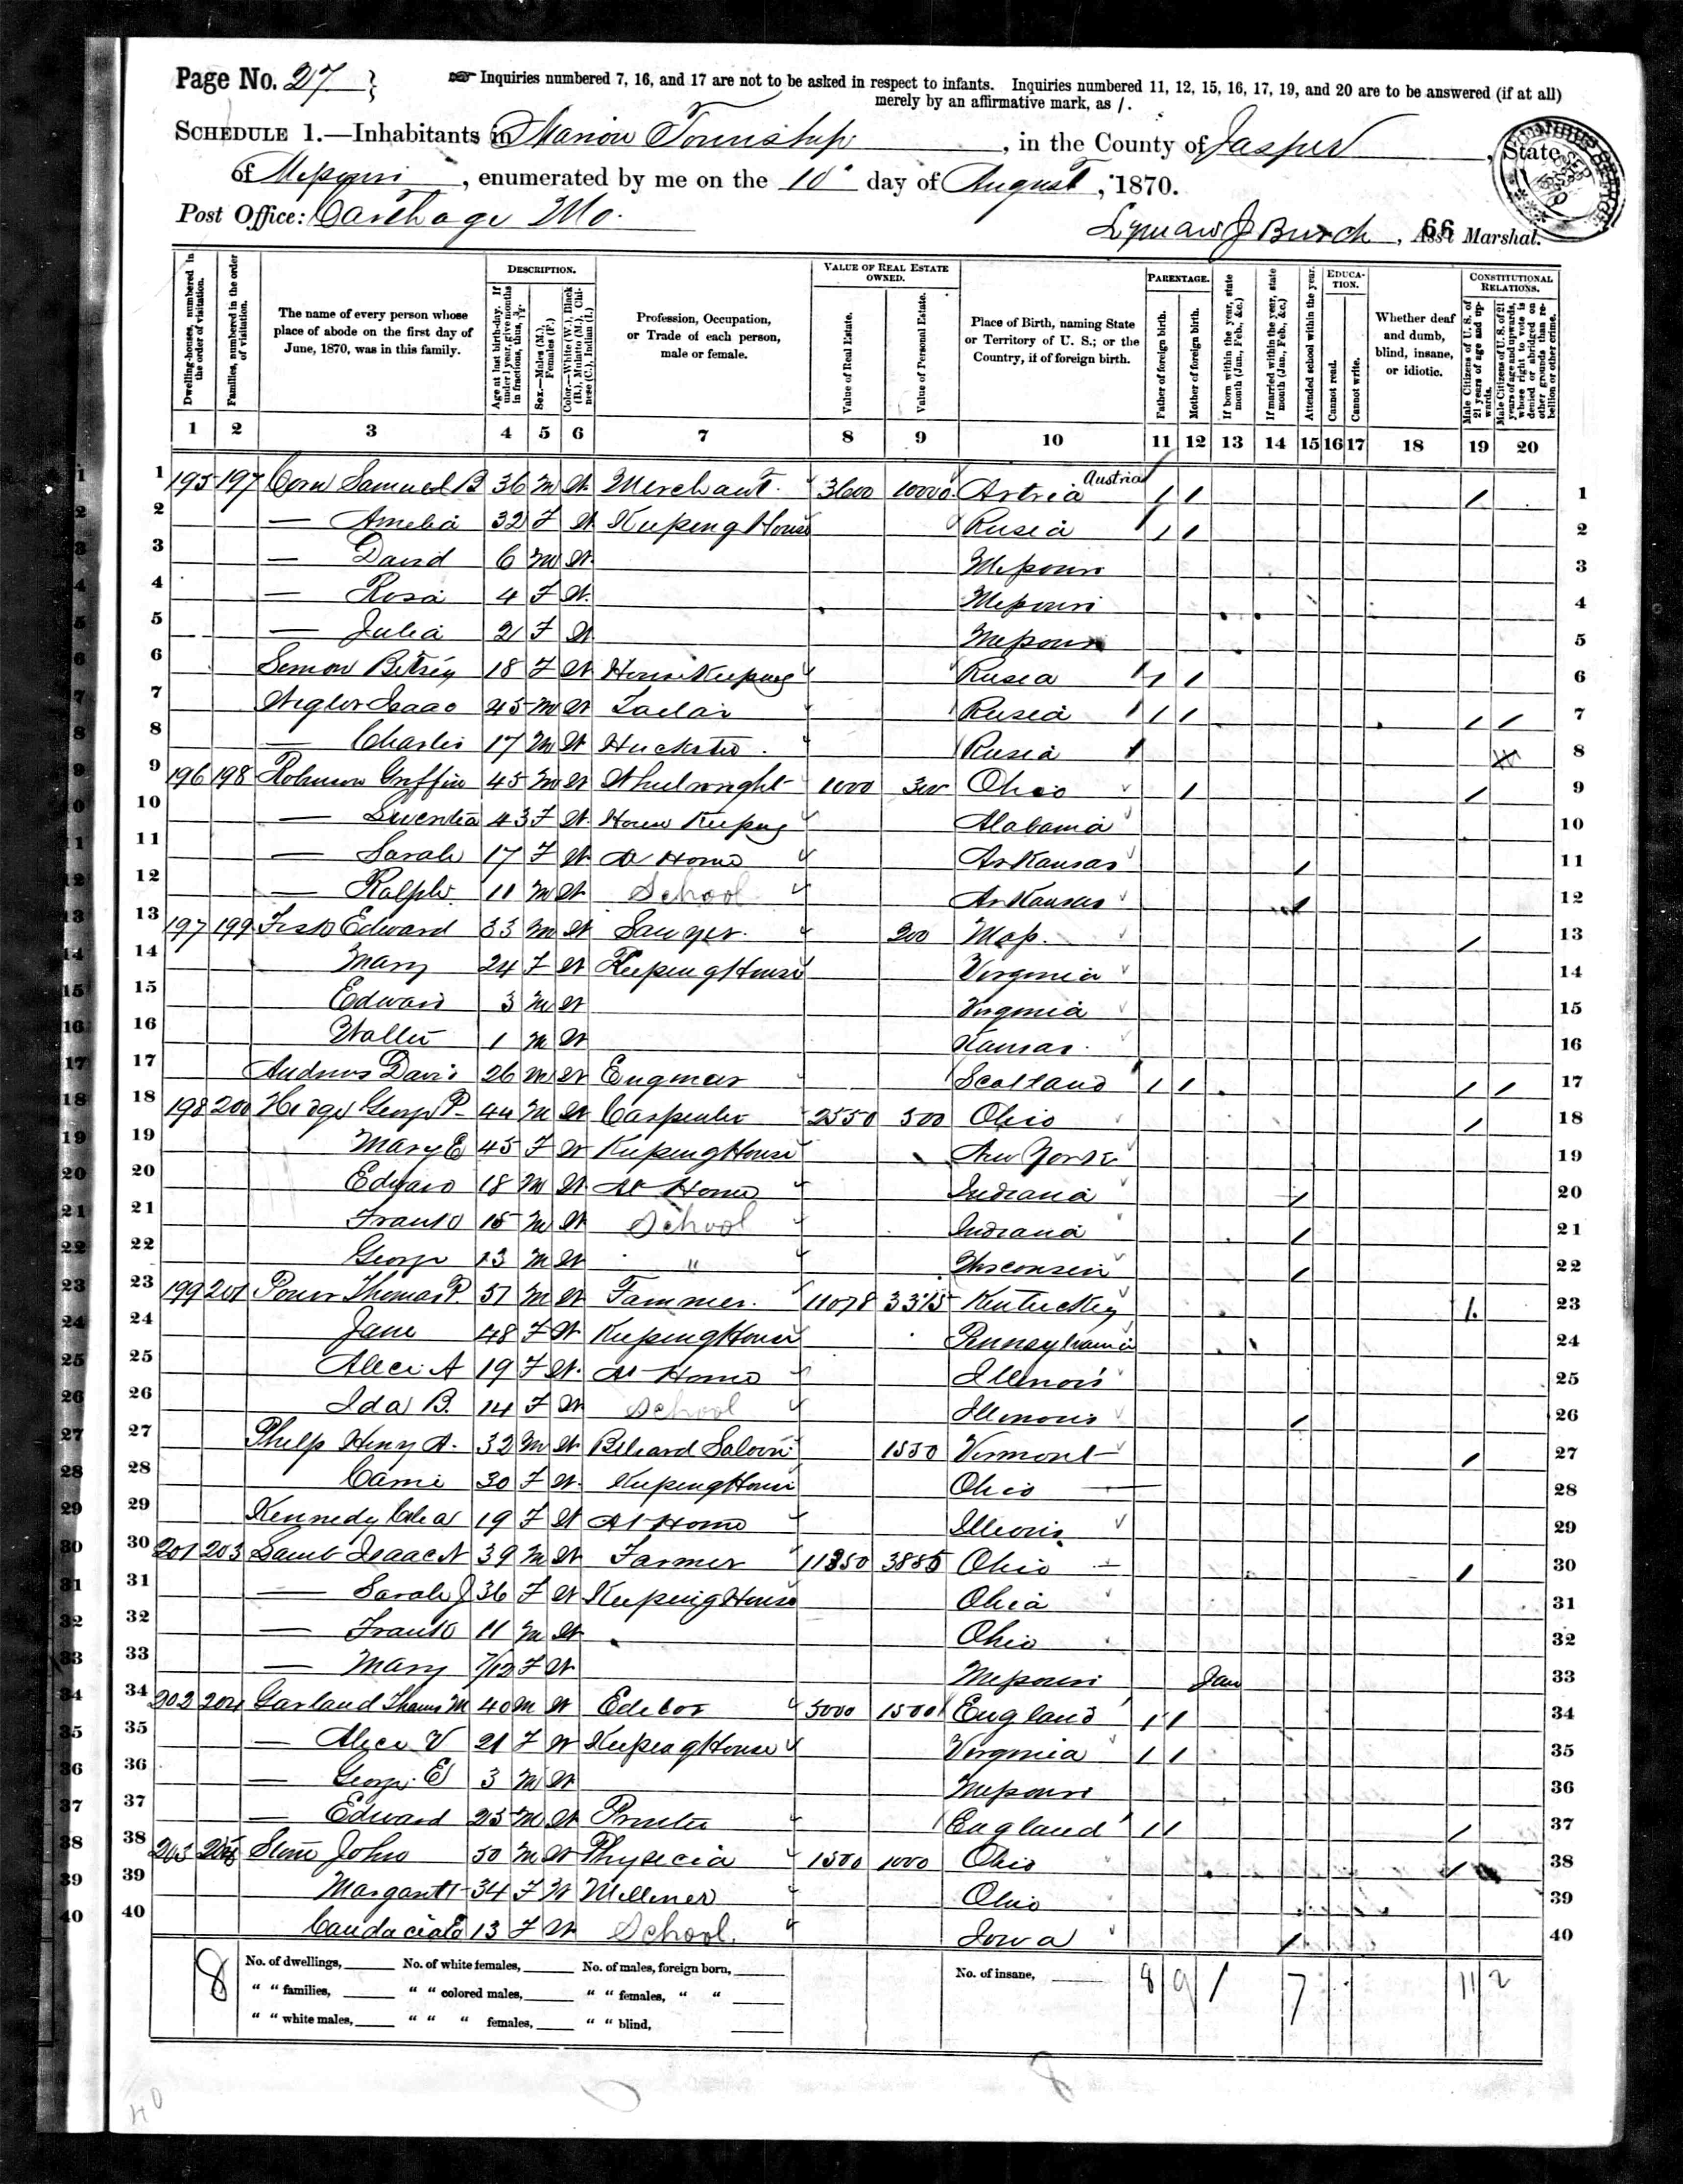 Page No. 27
Inquiries numbered 7, 16, and 17 are not to be asked in respect to infants. Inquiries numbered 11, 12, 15, 16, 17, 19, and 20 are to be answered (if at all)
merely by an affirmative mark, as /.
SCHEDULE 1.—Inhabitants in Marion Township, in the County of Jasper, State
of Missouri, enumerated by me on the 10" day of August, 1870.
Post Office: Carthage Mo.
Lyman J Burch, Ass't Marshal.
66
Dwelling-houses, numbered in the order of visitation.
Families, numbered in the order of visitation.
The name of every person whose place of abode on the first day of June, 1870, was in this family.
DESCRIPTION.
Age at last birth-day. If under 1 year, give months in fractions, thus, 3/12.
Sex.—Males (M.), Females (F.)
Color.—White (W.), Black (B.), Mulatto (M.), Chinese (C.), Indian (I.)
Profession, Occupation, or Trade of each person, male or female.
VALUE OF REAL ESTATE OWNED.
Value of Real Estate.
Value of Personal Estate.
Place of Birth, naming State or Territory of U. S.; or the Country, if of foreign birth.
PARENTAGE.
Father of foreign birth.
Mother of foreign birth.
If born within the year, state month (Jan., Feb., &c.)
If married within the year, state month (Jan., Feb., &c.)
Attended school within the year.
EDUCATION.
Cannot read.
Cannot write.
Whether deaf and dumb, blind, insane, or idiotic.
CONSTITUTIONAL RELATIONS.
Male Citizens of U. S. of 21 years of age and upwards.
Male Citizens of U. S. of 21 years of age and upwards, whose right to vote is denied or abridged on other grounds than rebellion or other crime.
1 2 3 4 5 6 7 8 9 10 11 12 13 14 15 16 17 18 19 20
1 195 197 Corn Samuel B 36 M W Merchant 3600 10000 Astria Austria / / / 1
2 — Amelia 32 F W Keeping House Rusia / / 2
3 — David 6 M W Missouri 3
4 — Rosa 4 F W Missouri 4
5 — Julia 2 F W Missouri 5
6 18 F W House Keeping Rusia / / 6
7 Isaac 45 M W Rusia / / / / 7
8 — Charles 17 M W Huckster Rusia 8
9 196 198 Griffin 45 M W Wheelwright 1000 300 Ohio / / 9
10 — 43 F W House Keeping Alabama 10
11 — Sarah 17 F W At Home Arkansas / 11
12 — Ralph 11 M W School Arkansas / 12
13 197 199 Fisk Edward 33 M W Sawyer 200 Mass. / 13
14 Mary 24 F W Keeping House Virginia 14
15 Edward 3 M W Virginia 15
16 Walter 1 M W Kansas 16
17 Andrews David 26 M W Scotland / / / / 17
18 198 200 Hedge George P 44 M W Carpenter 2550 500 Ohio / 18
19 Mary E 45 F W Keeping House New York 19
20 Edward 18 M W At Home Indiana / 20
21 Frank 15 M W School Indiana / 21
22 George 13 M W " Wisconsin / 22
23 199 201 Power Thomas P. 57 M W Farmer 11078 3315 Kentucky / 23
24 Jane 48 F W Keeping House Pennsylvania 24
25 Alice A 19 F W At Home Illinois 25
26 Ida B. 14 F W School Illinois / 26
27 Phelps Henry A. 32 M W Billiard Saloon 1550 Vermont / 27
28 Carrie 30 F W Keeping House Ohio 28
29 Kennedy 19 F W At Home Illinois 29
30 201 203 Lamb Isaac N 39 M W Farmer 11350 3885 Ohio / 30
31 — Sarah J 36 F W Keeping House Ohio 31
32 — Frank 11 M W Ohio 32
33 — Mary 7/12 F W Missouri Jan 33
34 202 204 Garland M 40 M W Editor 5000 1500 England / / 34
35 — Alice V 21 F W Keeping House Virginia / / 35
36 — George E 3 M W Missouri 36
37 — Edward 25 M W Printer England / / / 37
38 203 205 John 50 M W Physicia 1500 1000 Ohio / 38
39 Margarett 34 F W Milliner Ohio 39
40 13 F W School Iowa / 40
8
No. of dwellings, No. of white females, No. of males, foreign born, No. of insane, 8 9 1 7 11 2
" " families, " " colored males, " " females, " "
" " white males, " " " females, " " blind,